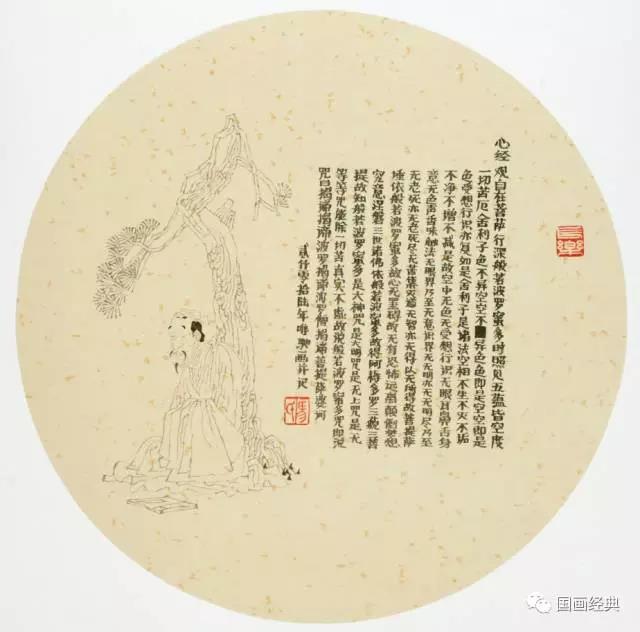 心经 观自在菩萨行深般若波罗蜜多时照见五蕴皆空度
一切苦厄舍利子色不异空空不异色色即是空空即是
色受想行识亦复如是舍利子是诸法空相不生不灭不垢
不净不增不减是故空中无色无受想行识无眼耳鼻舌身
意无色声香味触法无眼界乃至无意识界无无明亦无无明尽乃至
无老死亦无老死尽无苦集灭道无智亦无得以无所得故菩提萨
埵依般若波罗蜜多故心无罣碍故无有恐怖远离颠倒梦想
究竟涅槃三世诸佛依般若波罗蜜多故得阿耨多罗三藐三菩
提故知般若波罗蜜多是大神咒是大明咒是无上咒是无
等等咒能除一切苦真实不虚故说般若波罗蜜多咒即说
咒曰揭谛揭谛波罗揭谛波罗僧揭谛菩提萨婆诃
贰仟零拾陆年画并记
国画经典